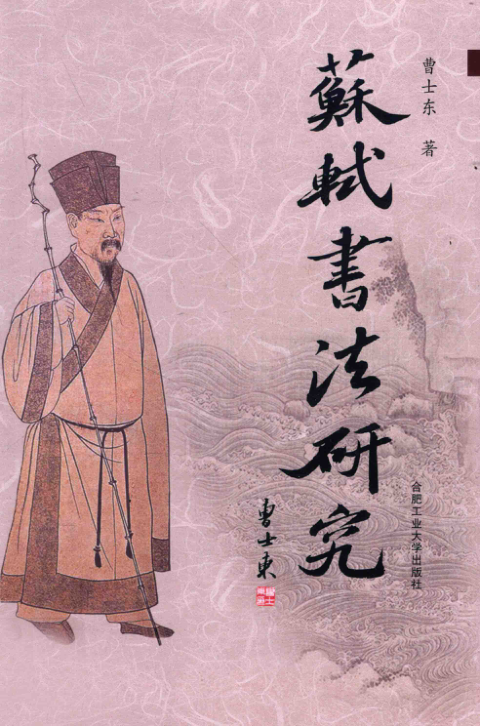 曹士东 著
蘇軾書法研究
合肥工业大学出版社
曹士東